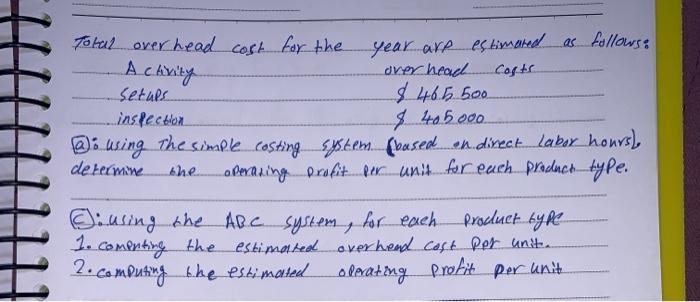 Total overhead cost for the year are estimated as follows:
Activity overhead costs
setups $ 465.500
inspection $ 405.000
(a): using The simple costing system (based on direct labor hours),
determine the operating profit per unit for each product type.
(C): using the ABC system, for each product type
1. computing the estimated overhead cost per unit.
2. computing the estimated operating profit per unit